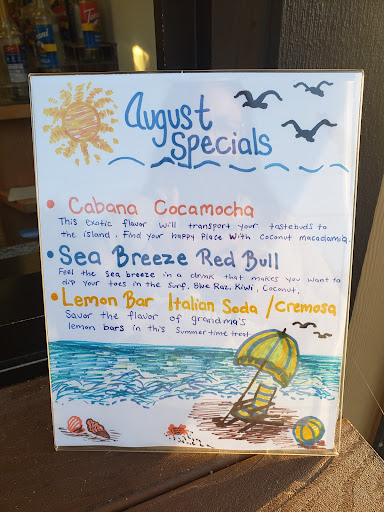 August
Specials
• Cabana Cocamocha
This exotic flavor will transport your tastebuds to
the island. Find your happy place with coconut macadamia.
• Sea Breeze Red Bull
Feel the sea breeze in a drink that makes you want to
dip your toes in the surf. Blue Raz, Kiwi, Coconut.
• Lemon Bar Italian Soda /Cremosa
Savor the flavor of grandma's
lemon bars in this summer time treat